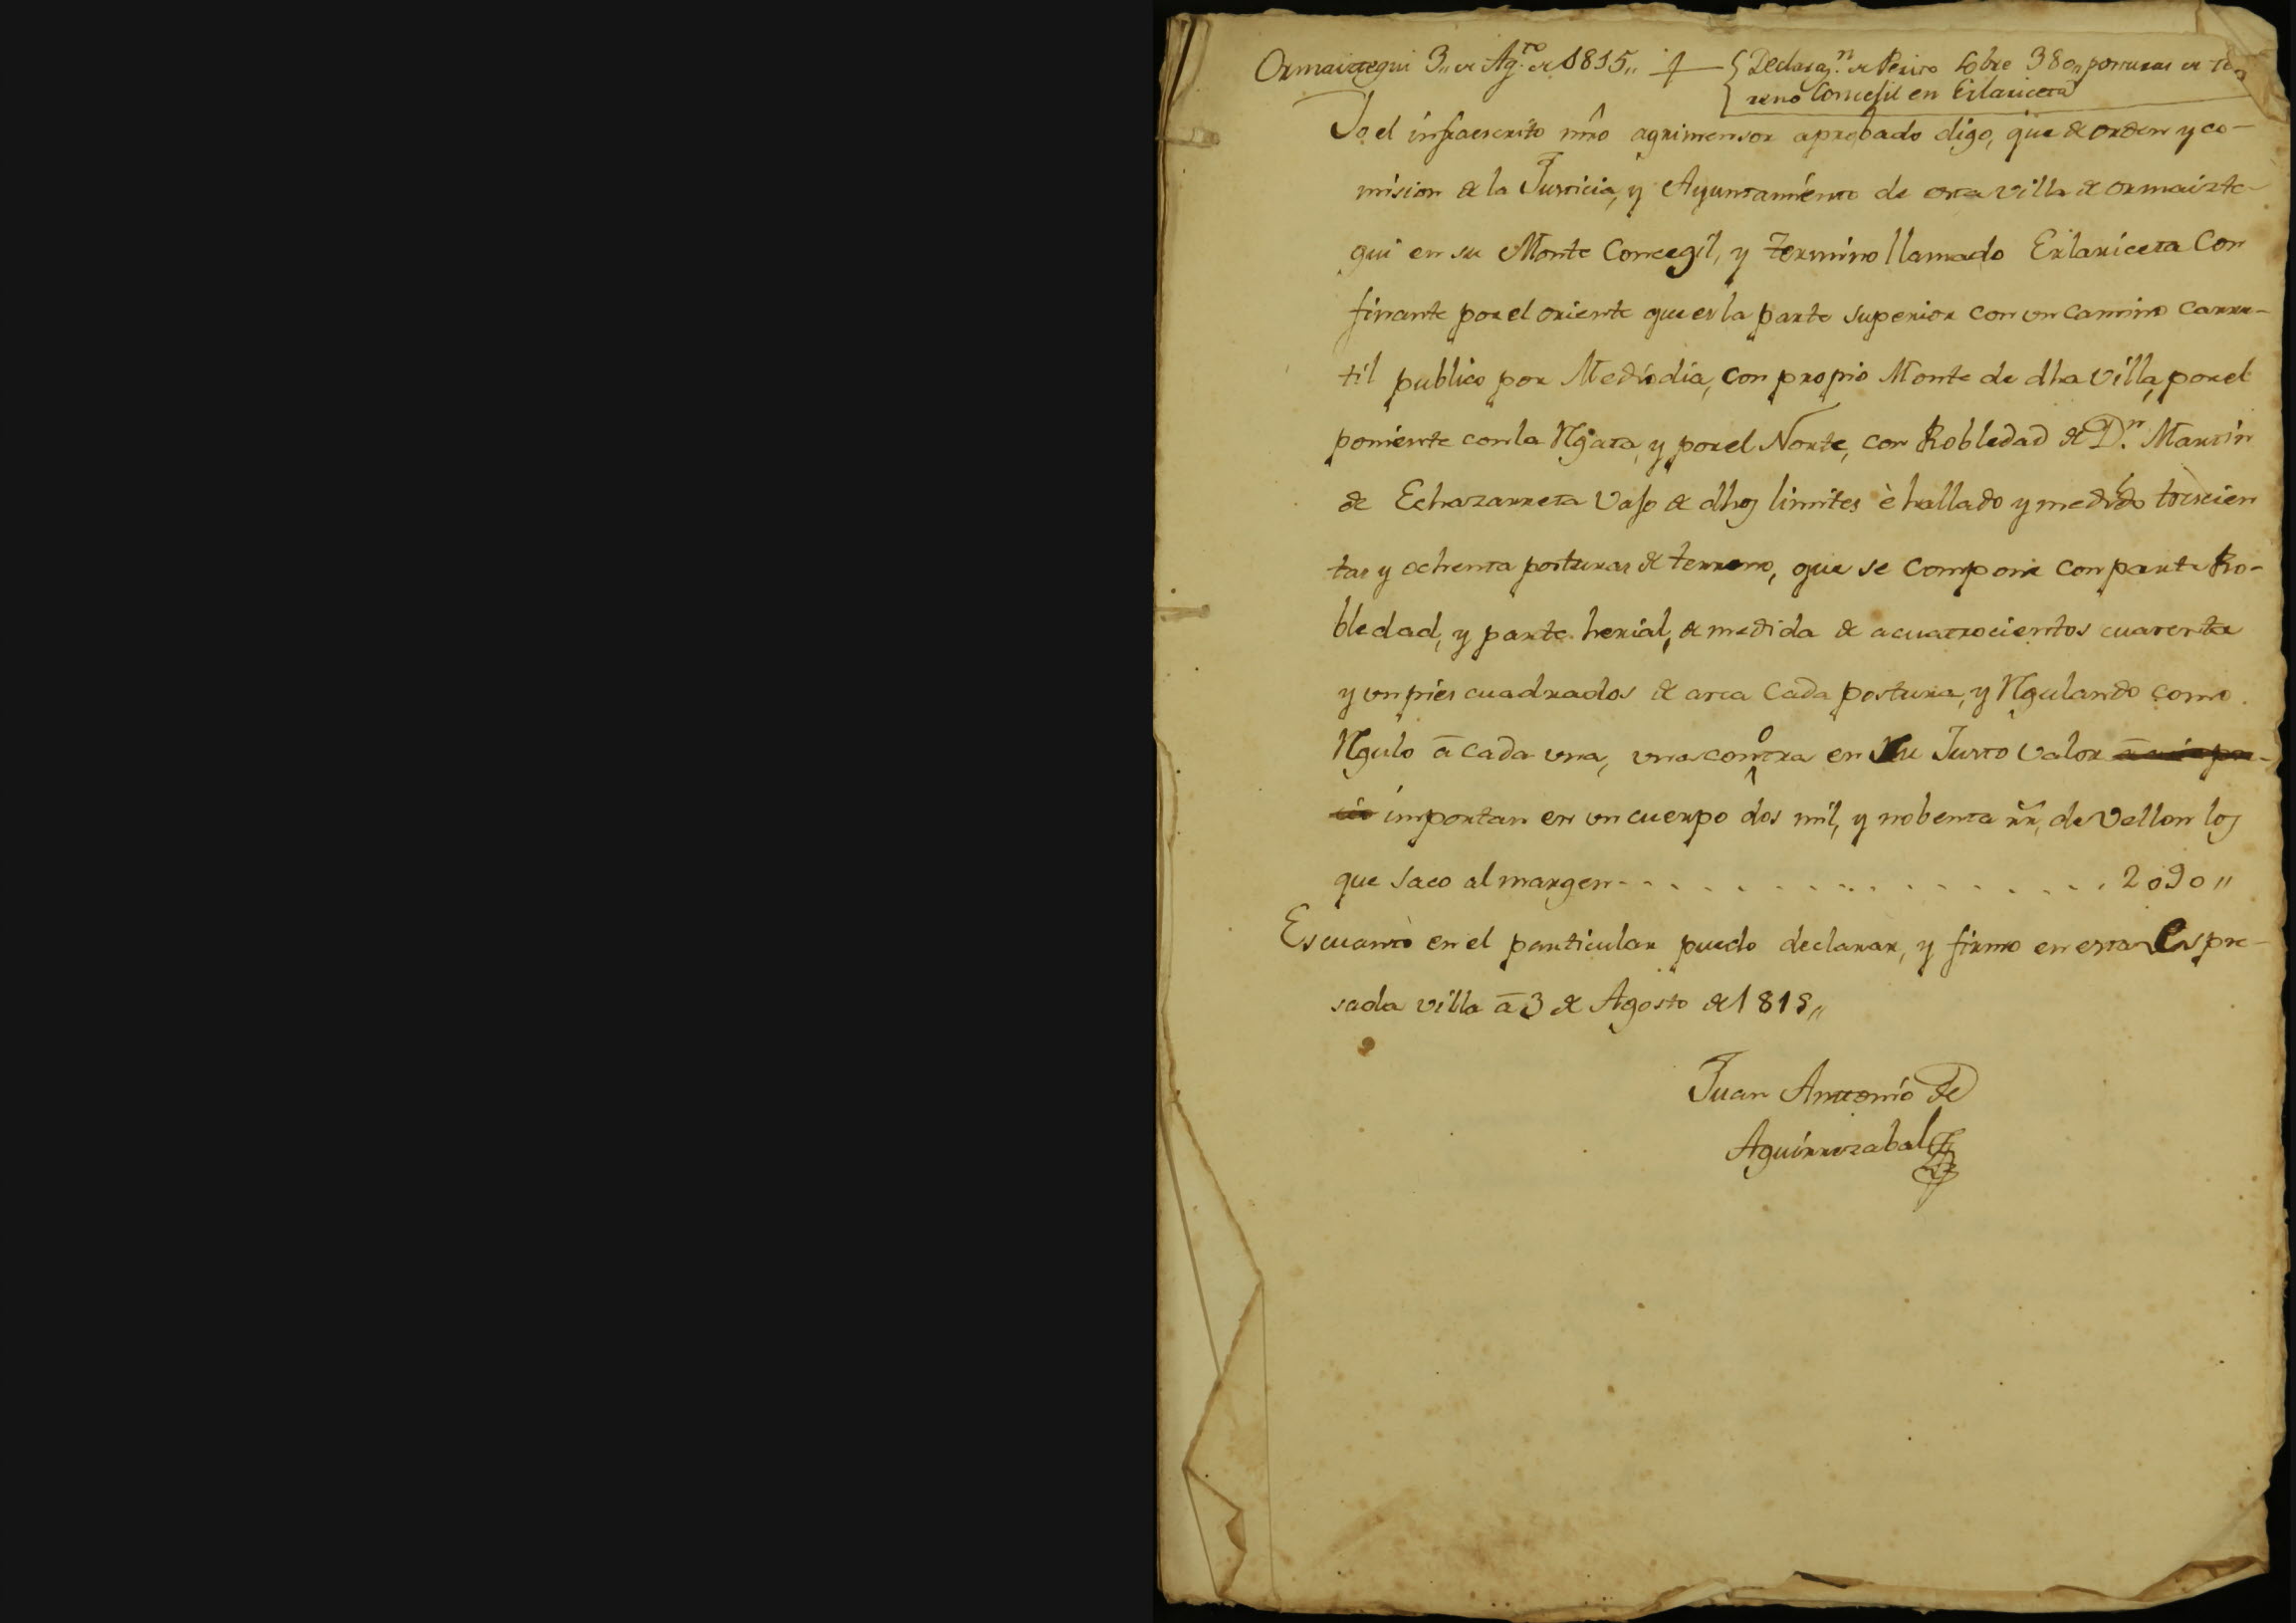 Ormaiztegui 3,, de Ag.to de 1815,,
Declaraz.n de Perito sobre 380,, posturas de te
rreno Concejil en Erlariceta
Yo el infraescrito mro agrimensor aprobado digo, que de orden y co-
mision de la Justicia, y Ayuntamiento de esta villa de ormaizte-
gui en su Monte Concegil, y termino llamado Erlariceta Con
finante por el oriente que es la parte superior con un camino carre-
til publico por Mediodia, con propio Monte de dha villa, por el
poniente con la Rgata, y por el Norte, con Robledad de D.n Martin
de Echazarreta vajo de dhos limites è hallado y medido trescien
tas y ochenta posturas de terreno, que se compone con parte Ro-
bledad, y parte herial, de medida de acuatrocientos cuarenta
y un pies cuadrados de area cada postura, y Rgulando como
Rgulo ā cada una, una con otra en su Justo valor
importan en un cuerpo dos mil, y nobenta rr, de vellon los
que saco al margen - - . . . . . . . . . . . . . . . 2090,,
Es cuanto en el particular puedo declarar, y firmo en esta espre-
sada villa ā 3 de Agosto de 1815,,
Juan Antonio de
Aguirrezabal